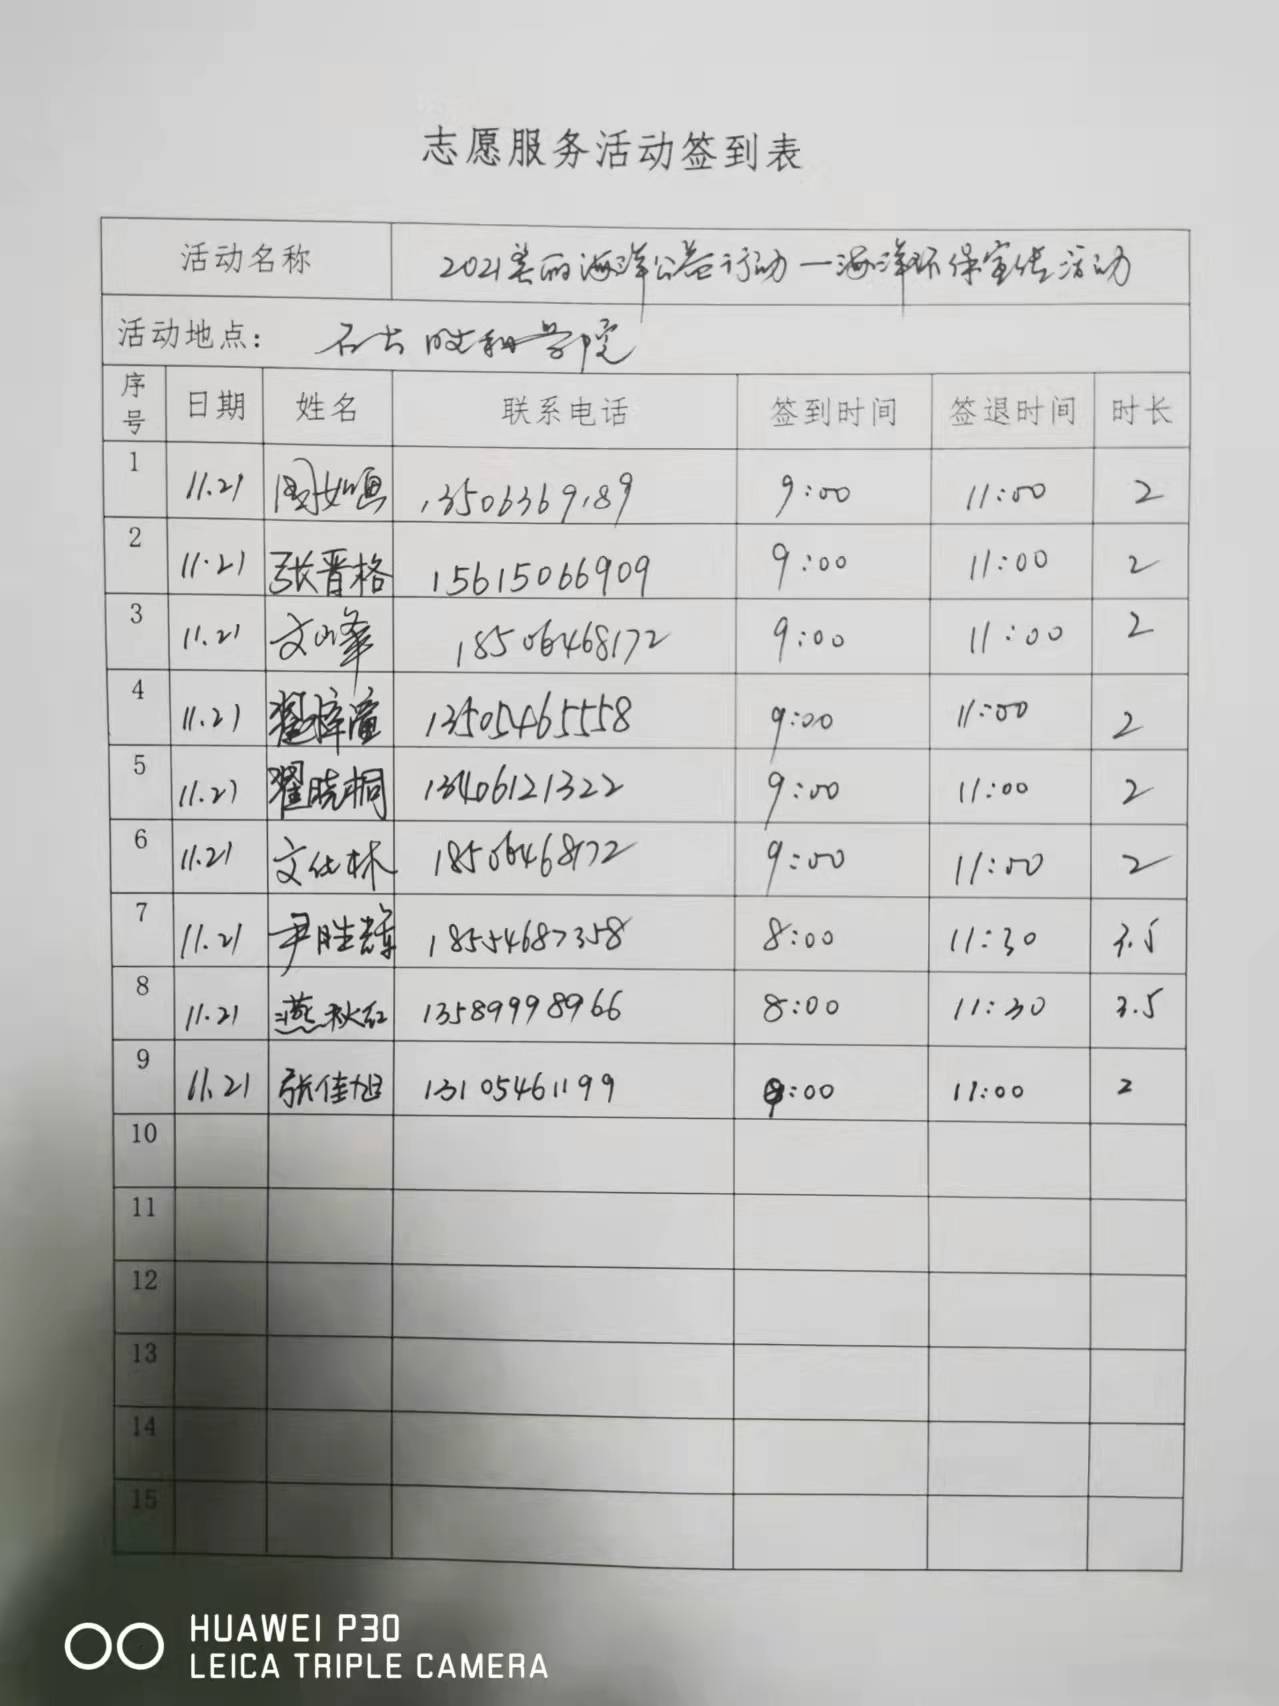 志愿服务活动签到表
活动名称 2021美丽海洋公益行动—海洋环保宣传活动
活动地点： 石大胜利学院
序号 日期 姓名 联系电话 签到时间 签退时间 时长
1 11.21 周如 13506369189 9:00 11:00 2
2 11.21 张晋格 15615066909 9:00 11:00 2
3 11.21 文峰 18506468172 9:00 11:00 2
4 11.21 翟梓童 13505465558 9:00 11:00 2
5 11.21 翟晓桐 13406121322 9:00 11:00 2
6 11.21 文仕林 18506468172 9:00 11:00 2
7 11.21 尹胜辉 18554687358 8:00 11:30 3.5
8 11.21 燕秋红 13589998966 8:00 11:30 3.5
9 11.21 张佳旭 13105461199 9:00 11:00 2
10
11
12
13
14
15
HUAWEI P30
LEICA TRIPLE CAMERA